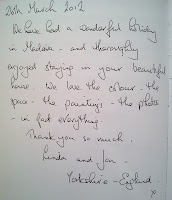 26th March 2012
We have had a wonderful holiday
in Madeira - and thoroughly
enjoyed staying in your beautiful
house. We love the colour - the
space - the paintings - the photos
- in fact everything.
Thank you so much.
Linda and Jon -
Yorkshire - England
x